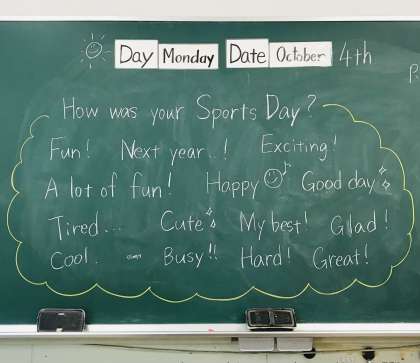 Day Monday Date October 4th
P
How was your Sports Day?
Fun! Next year..! Exciting!
A lot of fun! Happy Good day!
Tired... Cute My best! Glad!
Cool. Busy!! Hard! Great!